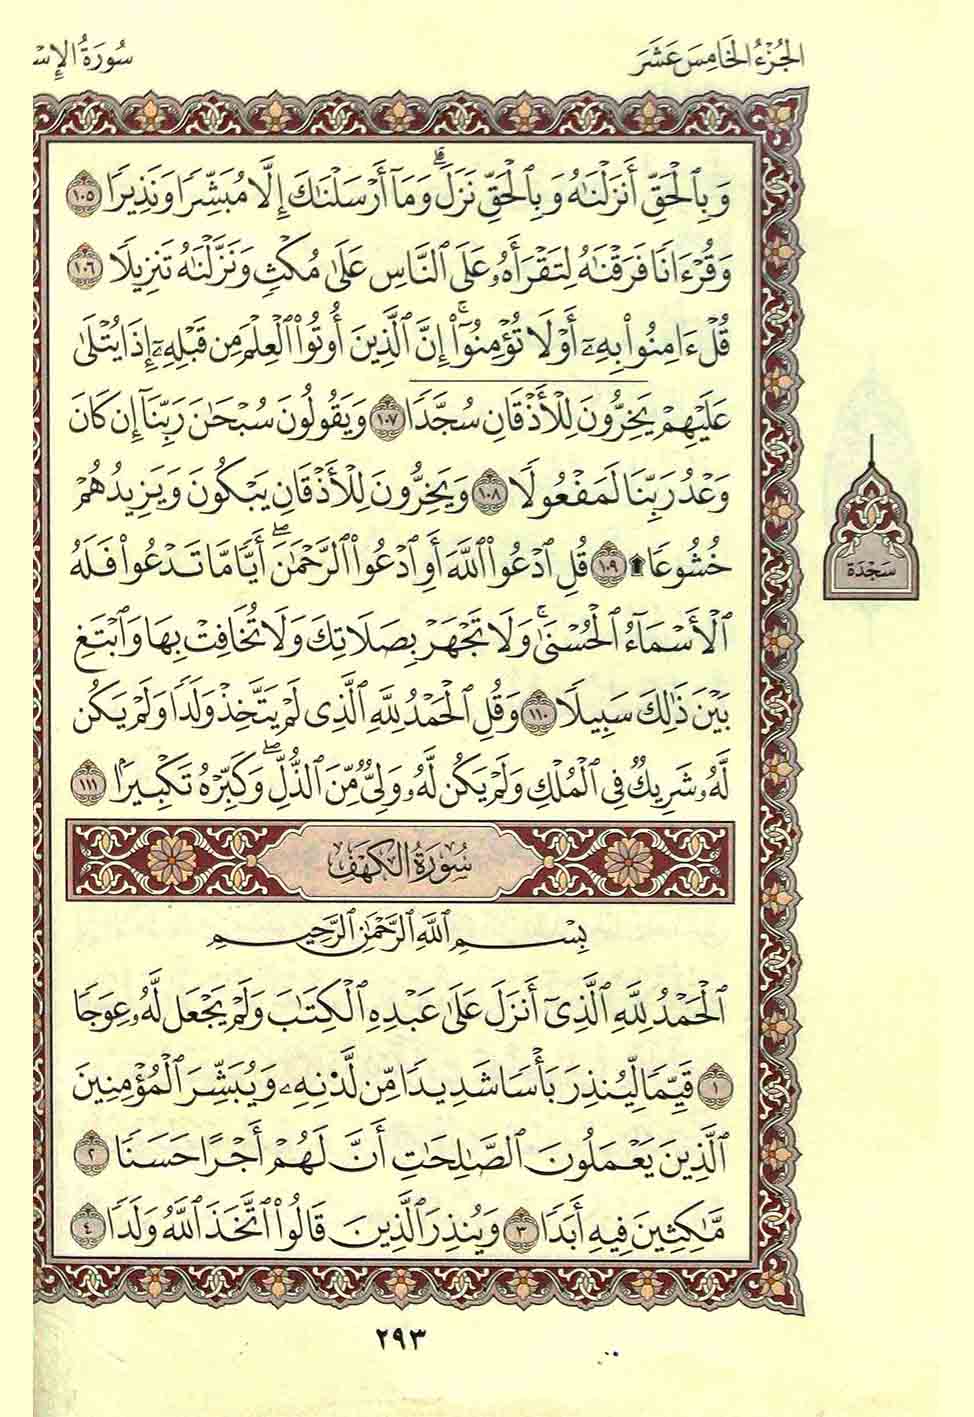 الجُزْءُ الخَامِسَ عَشَرَ
سُورَةُ الإِسـ
وَبِٱلْحَقِّ أَنزَلْنَٰهُ وَبِٱلْحَقِّ نَزَلَ ۗ وَمَآ أَرْسَلْنَٰكَ إِلَّا مُبَشِّرًا وَنَذِيرًا ١٠٥
وَقُرْءَانًا فَرَقْنَٰهُ لِتَقْرَأَهُۥ عَلَى ٱلنَّاسِ عَلَىٰ مُكْثٍ وَنَزَّلْنَٰهُ تَنزِيلًا ١٠٦
قُلْ ءَامِنُوا۟ بِهِۦٓ أَوْ لَا تُؤْمِنُوٓا۟ ۚ إِنَّ ٱلَّذِينَ أُوتُوا۟ ٱلْعِلْمَ مِن قَبْلِهِۦٓ إِذَا يُتْلَىٰ
عَلَيْهِمْ يَخِرُّونَ لِلْأَذْقَانِ سُجَّدًا ١٠٧ وَيَقُولُونَ سُبْحَٰنَ رَبِّنَآ إِن كَانَ
وَعْدُ رَبِّنَا لَمَفْعُولًا ١٠٨ وَيَخِرُّونَ لِلْأَذْقَانِ يَبْكُونَ وَيَزِيدُهُمْ
خُشُوعًا ۩ ١٠٩ قُلِ ٱدْعُوا۟ ٱللَّهَ أَوِ ٱدْعُوا۟ ٱلرَّحْمَٰنَ ۖ أَيًّا مَّا تَدْعُوا۟ فَلَهُ
ٱلْأَسْمَآءُ ٱلْحُسْنَىٰ ۚ وَلَا تَجْهَرْ بِصَلَاتِكَ وَلَا تُخَافِتْ بِهَا وَٱبْتَغِ
بَيْنَ ذَٰلِكَ سَبِيلًا ١١٠ وَقُلِ ٱلْحَمْدُ لِلَّهِ ٱلَّذِى لَمْ يَتَّخِذْ وَلَدًا وَلَمْ يَكُن
لَّهُۥ شَرِيكٌ فِى ٱلْمُلْكِ وَلَمْ يَكُن لَّهُۥ وَلِىٌّ مِّنَ ٱلذُّلِّ ۖ وَكَبِّرْهُ تَكْبِيرًۢا ١١١
سُورَةُ الكَهْفِ
بِسْمِ ٱللَّهِ ٱلرَّحْمَٰنِ ٱلرَّحِيمِ
ٱلْحَمْدُ لِلَّهِ ٱلَّذِىٓ أَنزَلَ عَلَىٰ عَبْدِهِ ٱلْكِتَٰبَ وَلَمْ يَجْعَل لَّهُۥ عِوَجًا
١ قَيِّمًا لِّيُنذِرَ بَأْسًا شَدِيدًا مِّن لَّدُنْهُ وَيُبَشِّرَ ٱلْمُؤْمِنِينَ
ٱلَّذِينَ يَعْمَلُونَ ٱلصَّٰلِحَٰتِ أَنَّ لَهُمْ أَجْرًا حَسَنًا ٢
مَّٰكِثِينَ فِيهِ أَبَدًا ٣ وَيُنذِرَ ٱلَّذِينَ قَالُوا۟ ٱتَّخَذَ ٱللَّهُ وَلَدًا ٤
سَجْدَة
٢٩٣